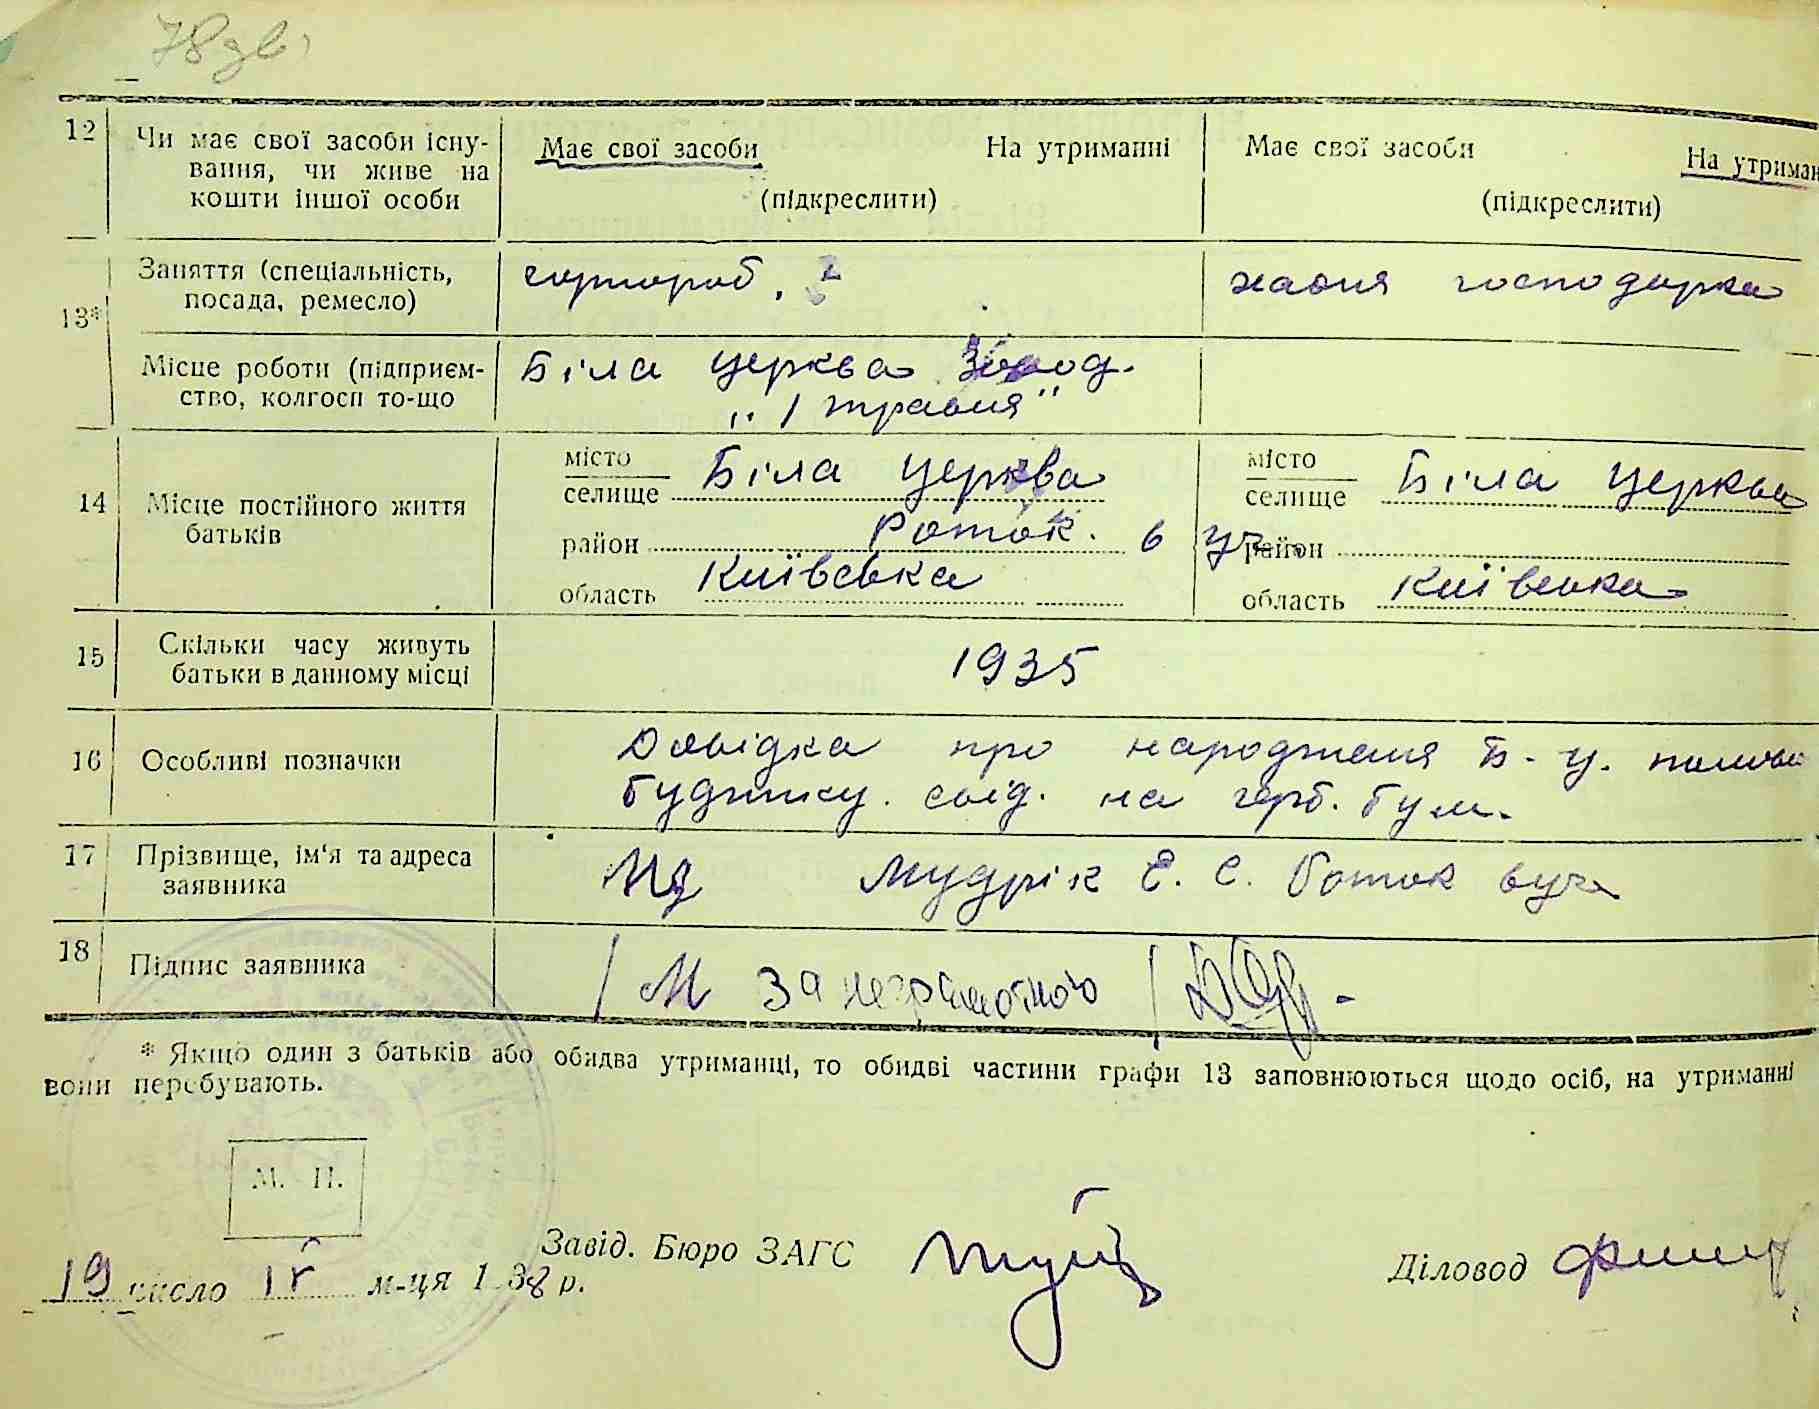 78 зв.
12 Чи має свої засоби існу-
вання, чи живе на
кошти іншої особи
Має свої засоби На утриманні
(підкреслити)
Має свої засоби На утриман
(підкреслити)
13* Заняття (спеціальність,
посада, ремесло)
чорнороб.
хатня господарка
Місце роботи (підприєм-
ство, колгосп то-що
Біла церква Завод.
„1 травня"
14 Місце постійного життя
батьків
місто
селище Біла церква
район Роток. 6 уч.
область Київська
місто
селище Біла церква
район
область Київська
15 Скільки часу живуть
батьки в данному місці
1935
16 Особливі позначки
Довідка про народження Б-Ц.
будинку. свід. на герб. бум.
17 Прізвище, ім'я та адреса
заявника
Мудрік Е. С. Роток 6 уч
18 Підпис заявника
/ М за неграмотного /
* Якщо один з батьків або обидва утриманці, то обидві частини графи 13 заповнюються щодо осіб, на утриманні
вони перебувають.
М. П.
19 число м-ця 1938 р.
Завід. Бюро ЗАГС
Діловод